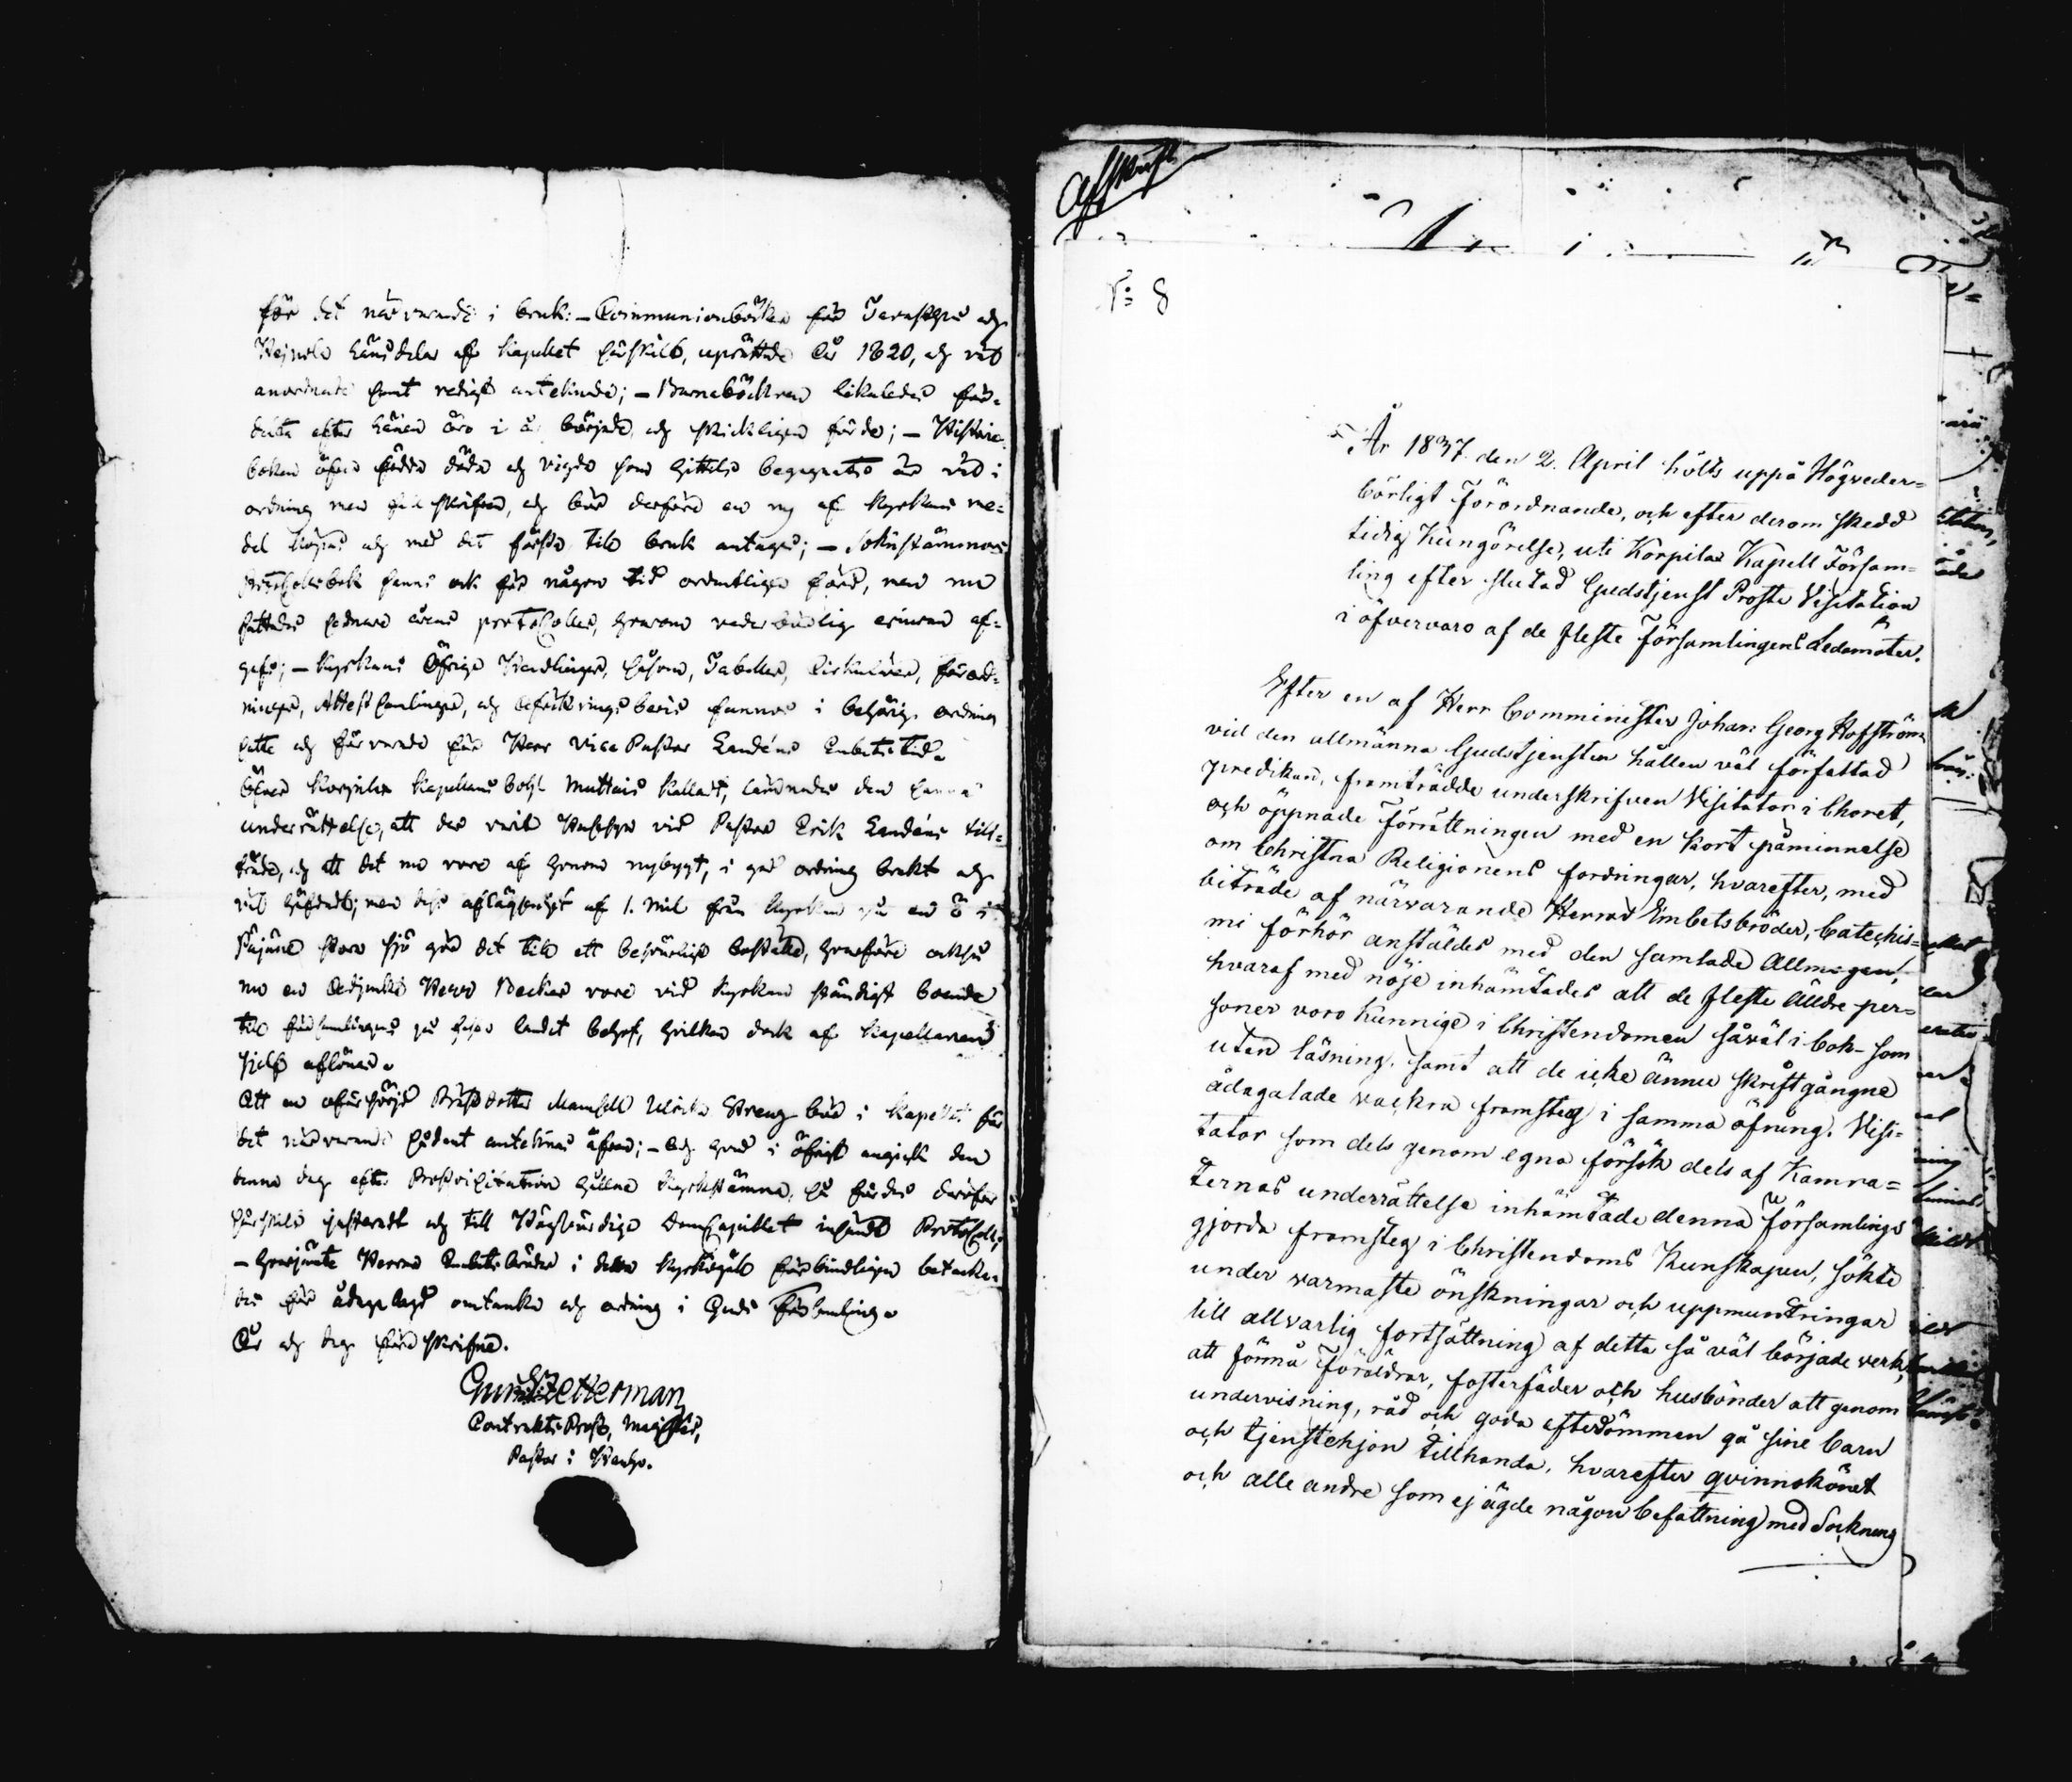 för det närvarande i bruk: – Communionböcker för Jernstyrs och
Hejnola länsdelar af Kapellet särskilt, uprättade år 1820, och väl
anordnade samt redigt antecknade; – Barnaböckren likaledes för
detta efter länen äro i år började och skickligen förde; – Historie-
boken öfver födda döda och vigda som hittils begagnats är väl i
ordning men full skrifven, och bör derföre en ny af Kyrkans me-
del köpas och med det första till bruk antagas; – Sockenstämmo
Protocollsbok fanns ock för någon tid ordentligen förd, men nu
sednare årens protocoller, hvarom vederbörlig erinran af-
gafs; – Kyrkans öfriga Handlingar, såsom, Tabeller, Cirkulairer, förord-
ningar, Attest samlingar, och befordrings bevis funnos i behörig ordning
satte och förvarade för Herr Vice Pastor Landéns Embetstid.
öfver Korpilax Kapellans bohl Muttais kalladt, lämnades den samma
underrättelse, att der varit Husesyn vid Pastor Erik Landéns till-
träde, och att det nu vore af honom nybygt, i god ordning brukt och
väl häfdadt; men dess aflägsenhet af 1. mil från Kyrkan på en ö i
Päjäne stora sjö gör det till ett besvärligt boställe, hvarföre också
nu en Adjunkt Herr Becker vore vid Kyrkan ständigt boende
till församlingens på fasta landet behof, hvilken dock af Kapellanen
sjelf aflönas.
Att en oförsörjd Prästdotter Mamsell Ulrica Streng bor i Kapellet för
det närvarande sådant antecknas äfven; – Och hvad i öfrigt angick den
denna dag efter Prostvisitation hållna Kyrkostämma, så fördes deröfver
särskilt justeradt och till Högvördiga DomCapitlet insändt Protocoll;
– hvarjemte Herrar Embetsbröder i detta Kyrkogäll förbindligen betacka-
des för ådagalagd omtanka och ordning i Guds Församling.
År och dag förr skrifne.
Gust. Zetterman
Contrakts Prost, Magister,
Pastor i Hauho.
Afskrift
N: 8
År 1837. den 2. April hölts uppå Högveder=
börligt Förordnande, och efter derom skedd
tidig Kungörelse, uti Korpilax Kapell Försam=
ling efter slutad Gudstjenst Proste Visitation
i öfvervaro af de fleste Församlingens Ledamöter.
Efter en af Herr Comminister Johan Georg Hofström
vid den allmänna Gudstjensten hållen väl författad
predikan, framträdde underskrifven Visitator i Choret,
och öppnade Förrättningen med en kort påminnelse
om Christna Religionens fordringar, hvarefter, med
biträde af närvarande Herrar Embetsbröder, Catechis=
mi förhör anställdes med den samlade Allmogen,
hvaraf med nöje inhämtades att de fleste äldre per=
soner voro kunnige i Christendomen såväl i bok- som
utan läsning, samt att de icke ännu skriftgångne
ådagalade vackra framsteg i samma öfning. Visi=
tator som dels genom egna försök dels af Kamra=
ternas underrättelse inhämtade denna Församlings
gjorda framsteg i Christendoms Kunskapen, sökte
under varmaste önskningar och uppmuntringar
till allvarlig fortsättning af detta så väl började verk,
att förmå Föräldrar, fosterfäder och husbönder att genom
undervisning, råd och goda efterdömmen gå sine barn
och tjenstehjon tillhanda, hvarefter qvinnokönet
och alle andre som ej ägde någon befattning med Sockneng